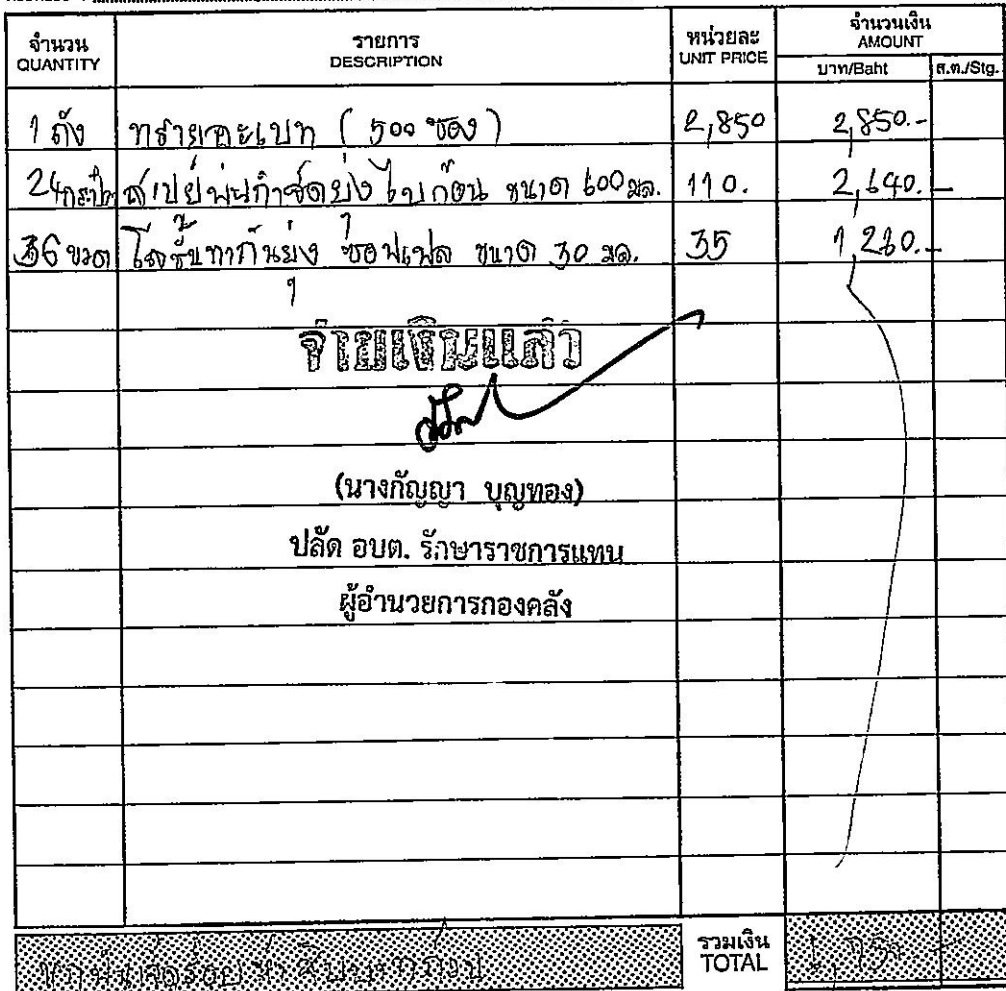 จำนวน รายการ หน่วยละ จำนวนเงิน
QUANTITY DESCRIPTION UNIT PRICE AMOUNT
บาท/Baht ส.ต./Stg.
1 ถัง ทรายอะเบท (500 ซอง) 2,850 2,850.-
24 กระป๋อง สเปย์พ่นกำจัดยุง ไบก๊อน ขนาด 600 มล. 110. 2,640.-
36 ขวด โลชั่นทากันยุง ซอฟเฟล ขนาด 30 มล. 35 1,260.-
จ่ายเงินแล้ว
(นางกัญญา บุญทอง)
ปลัด อบต. รักษาราชการแทน
ผู้อำนวยการกองคลัง
รวมเงิน
TOTAL